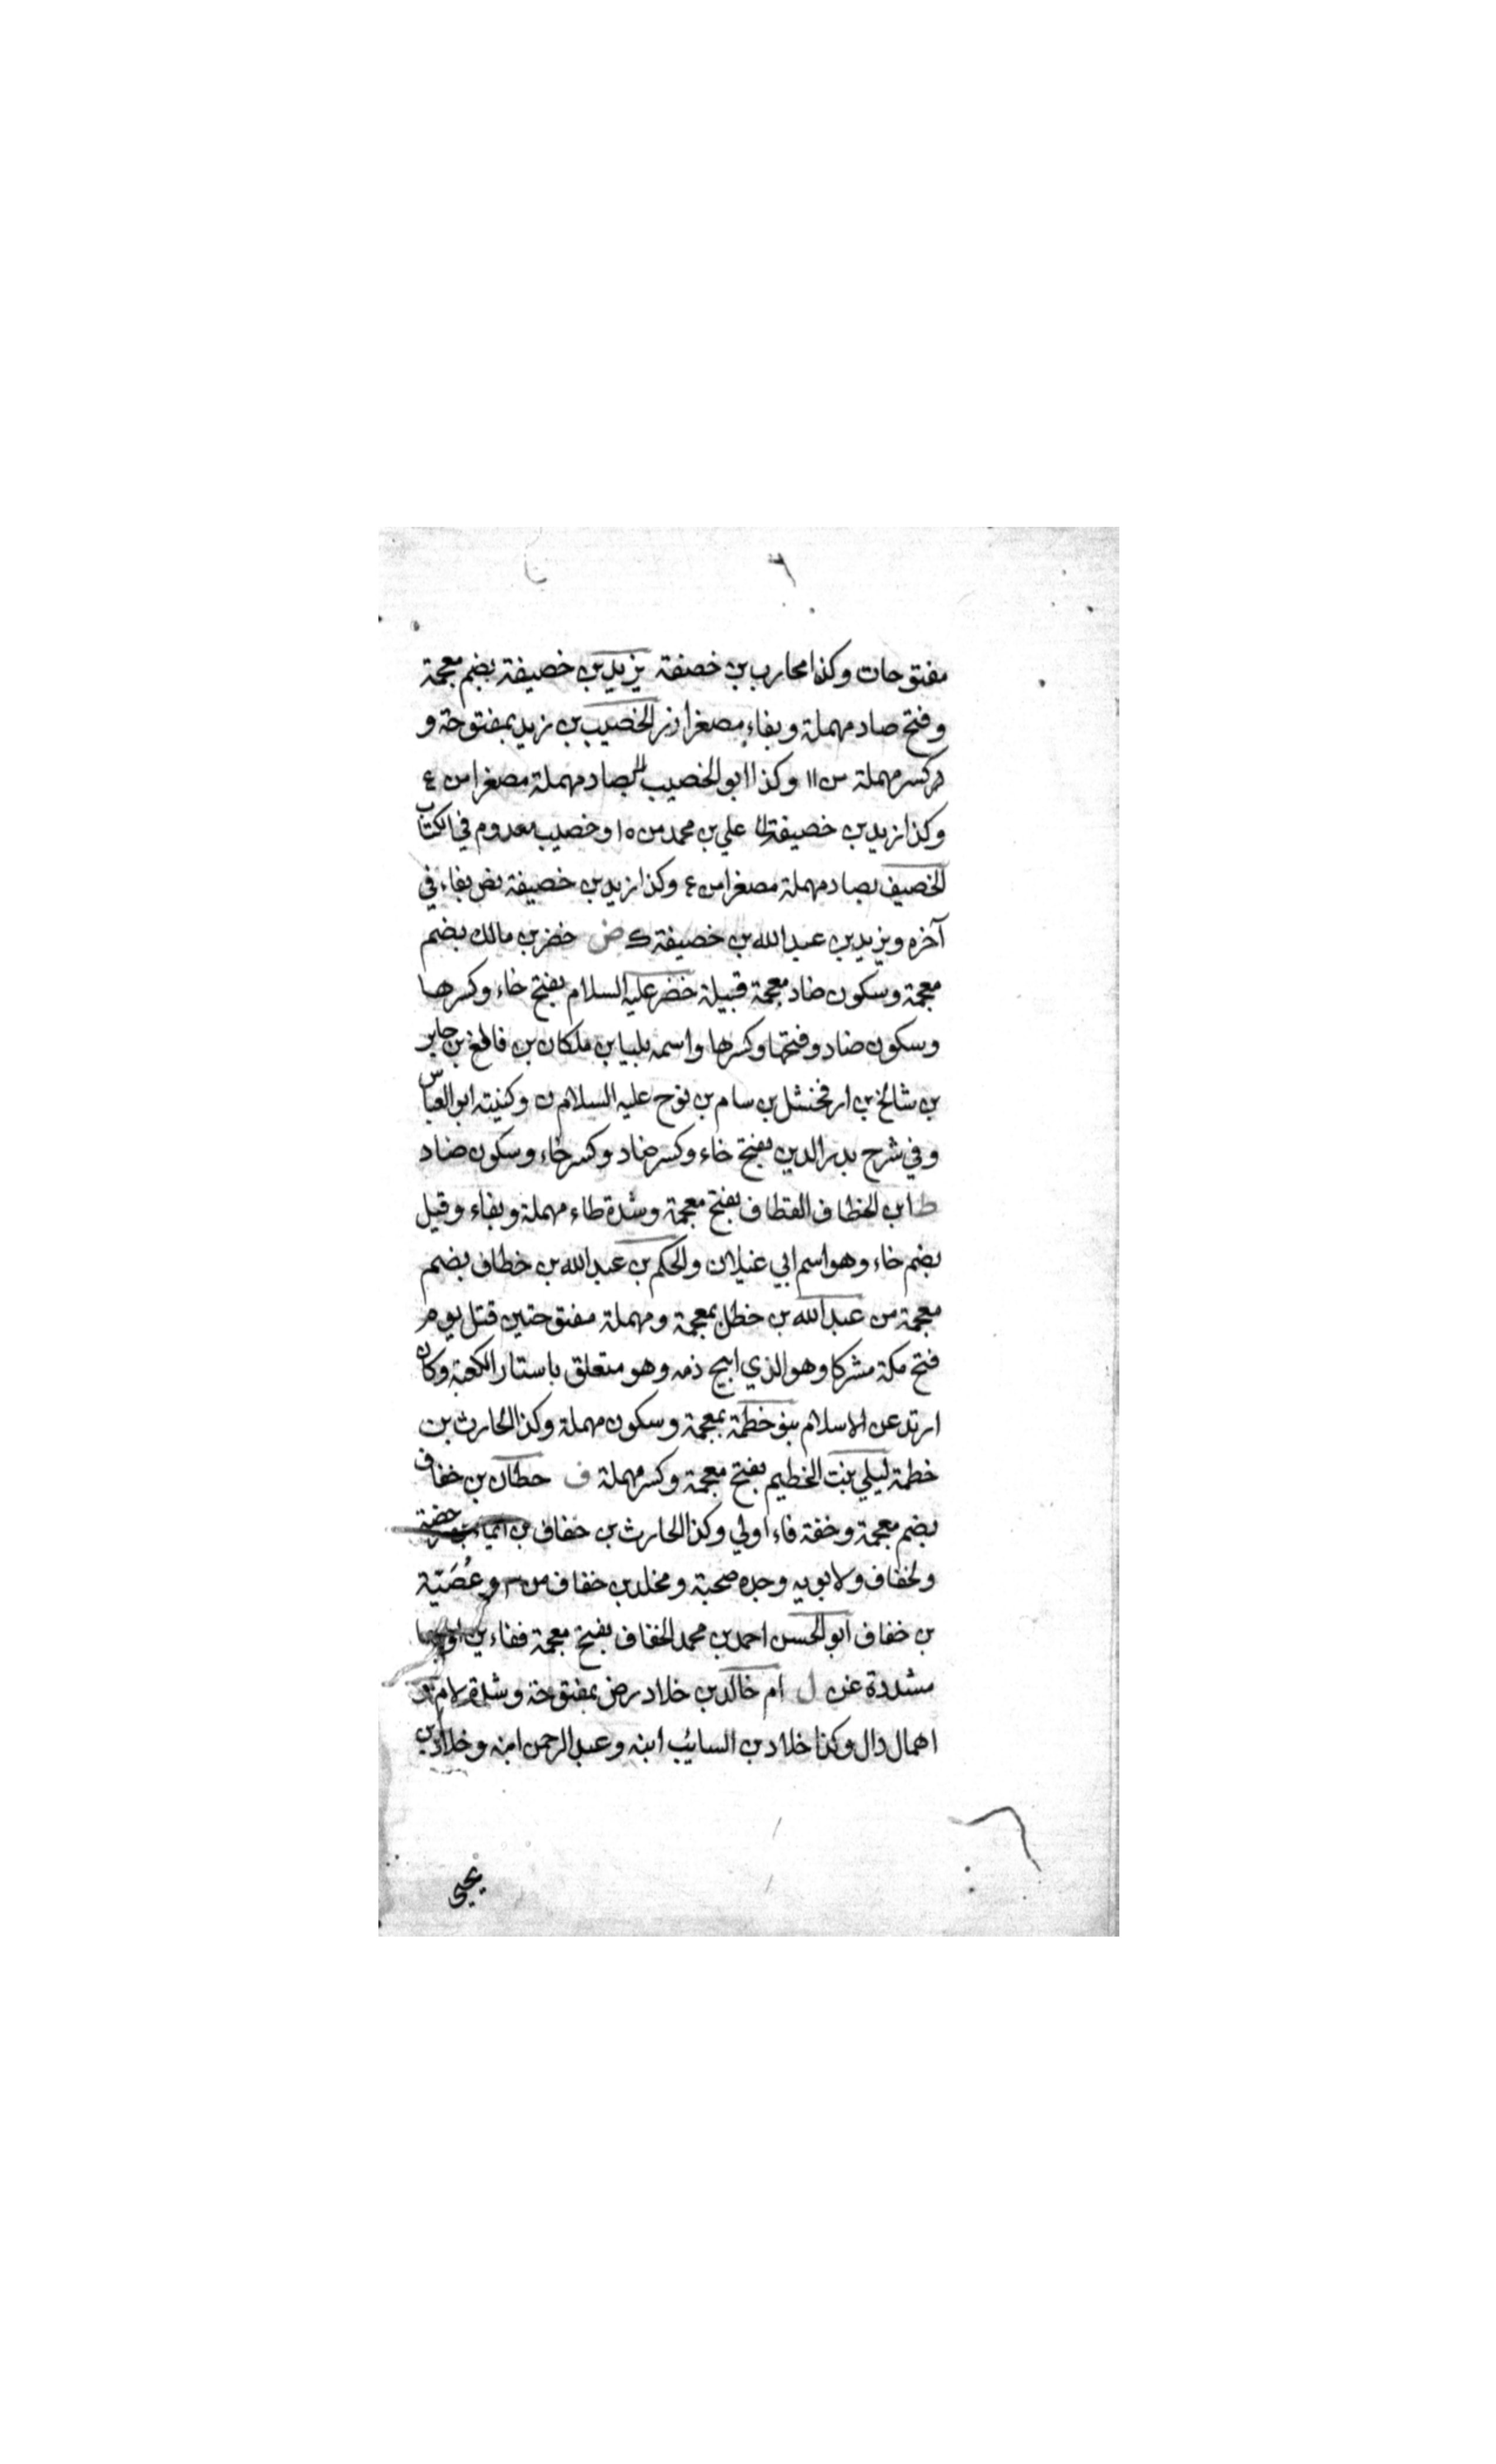 مفتوحات وكذا محارب بن خصفة يزيد بن خصيفة بضم معجمة
وفتح صاد مهملة وبفاء مصغرا زر الخصيب بن زيد بمفتوحة و
كسر مهملة س ١١ وكذا ابو الخصيب بصاد مهملة مصغرا من ٤
وكذا زيد بن خصيفة علي بن محمد من ١٥ وخصيب معدوم في الكتاب
الخصيف بصاد مهملة مصغرا من ٤ وكذا زيد بن خصيفة بفاء في
آخره ويزيد بن عبد الله بن خصيفة ك ض خضر بن مالك بضم
معجمة وسكون ضاد معجمة قبيلة خضر عليه السلام بفتح خاء وكسرها
وسكون ضاد وفتحها وكسرها واسمه بليا بن ملكان بن فالغ بن عابر
بن شالخ بن ارفخشل بن سام بن نوح عليه السلام ن وكنيته ابو العباس
وفي شرح بدر الدين بفتح خاء وكسر ضاد وكسر خاء وسكون ضاد
ط ابن الخطاف القطاف بفتح معجمة وشدة طاء مهملة وبفاء وقيل
بضم خاء وهو اسم ابي غيلان والحكم بن عبد الله بن خطاف بضم
معجمة من عبد الله بن خطل بمعجمة ومهملة مفتوحتين قتل يوم
فتح مكة مشركا وهو الذي ابيح دمه وهو متعلق باستار الكعبة وكان
ارتد عن الاسلام بنو خطمة بمعجمة وسكون مهملة وكذا الحارث بن
خطمة ليلي بنت الخطيم بفتح معجمة وكسر مهملة ف حطان بن خفاف
بضم معجمة وخفة فاء اولي وكذا الحارث بن خفاف بن ايماء بن
ولخفاف ولابويه وجده صحبة ومخلد بن خفاف من ٣ وعُصَيّة
بن خفاف ابو الحسن احمد بن محمد الخفاف بفتح معجمة ففاءين
مشددة غن ل ام خالد بن خلاد رض بمفتوحة وشدة لام
اهمال دال وكذا خلاد بن السايب ابنه وعبد الرحمن ابنه وخلاد بن
يحيي